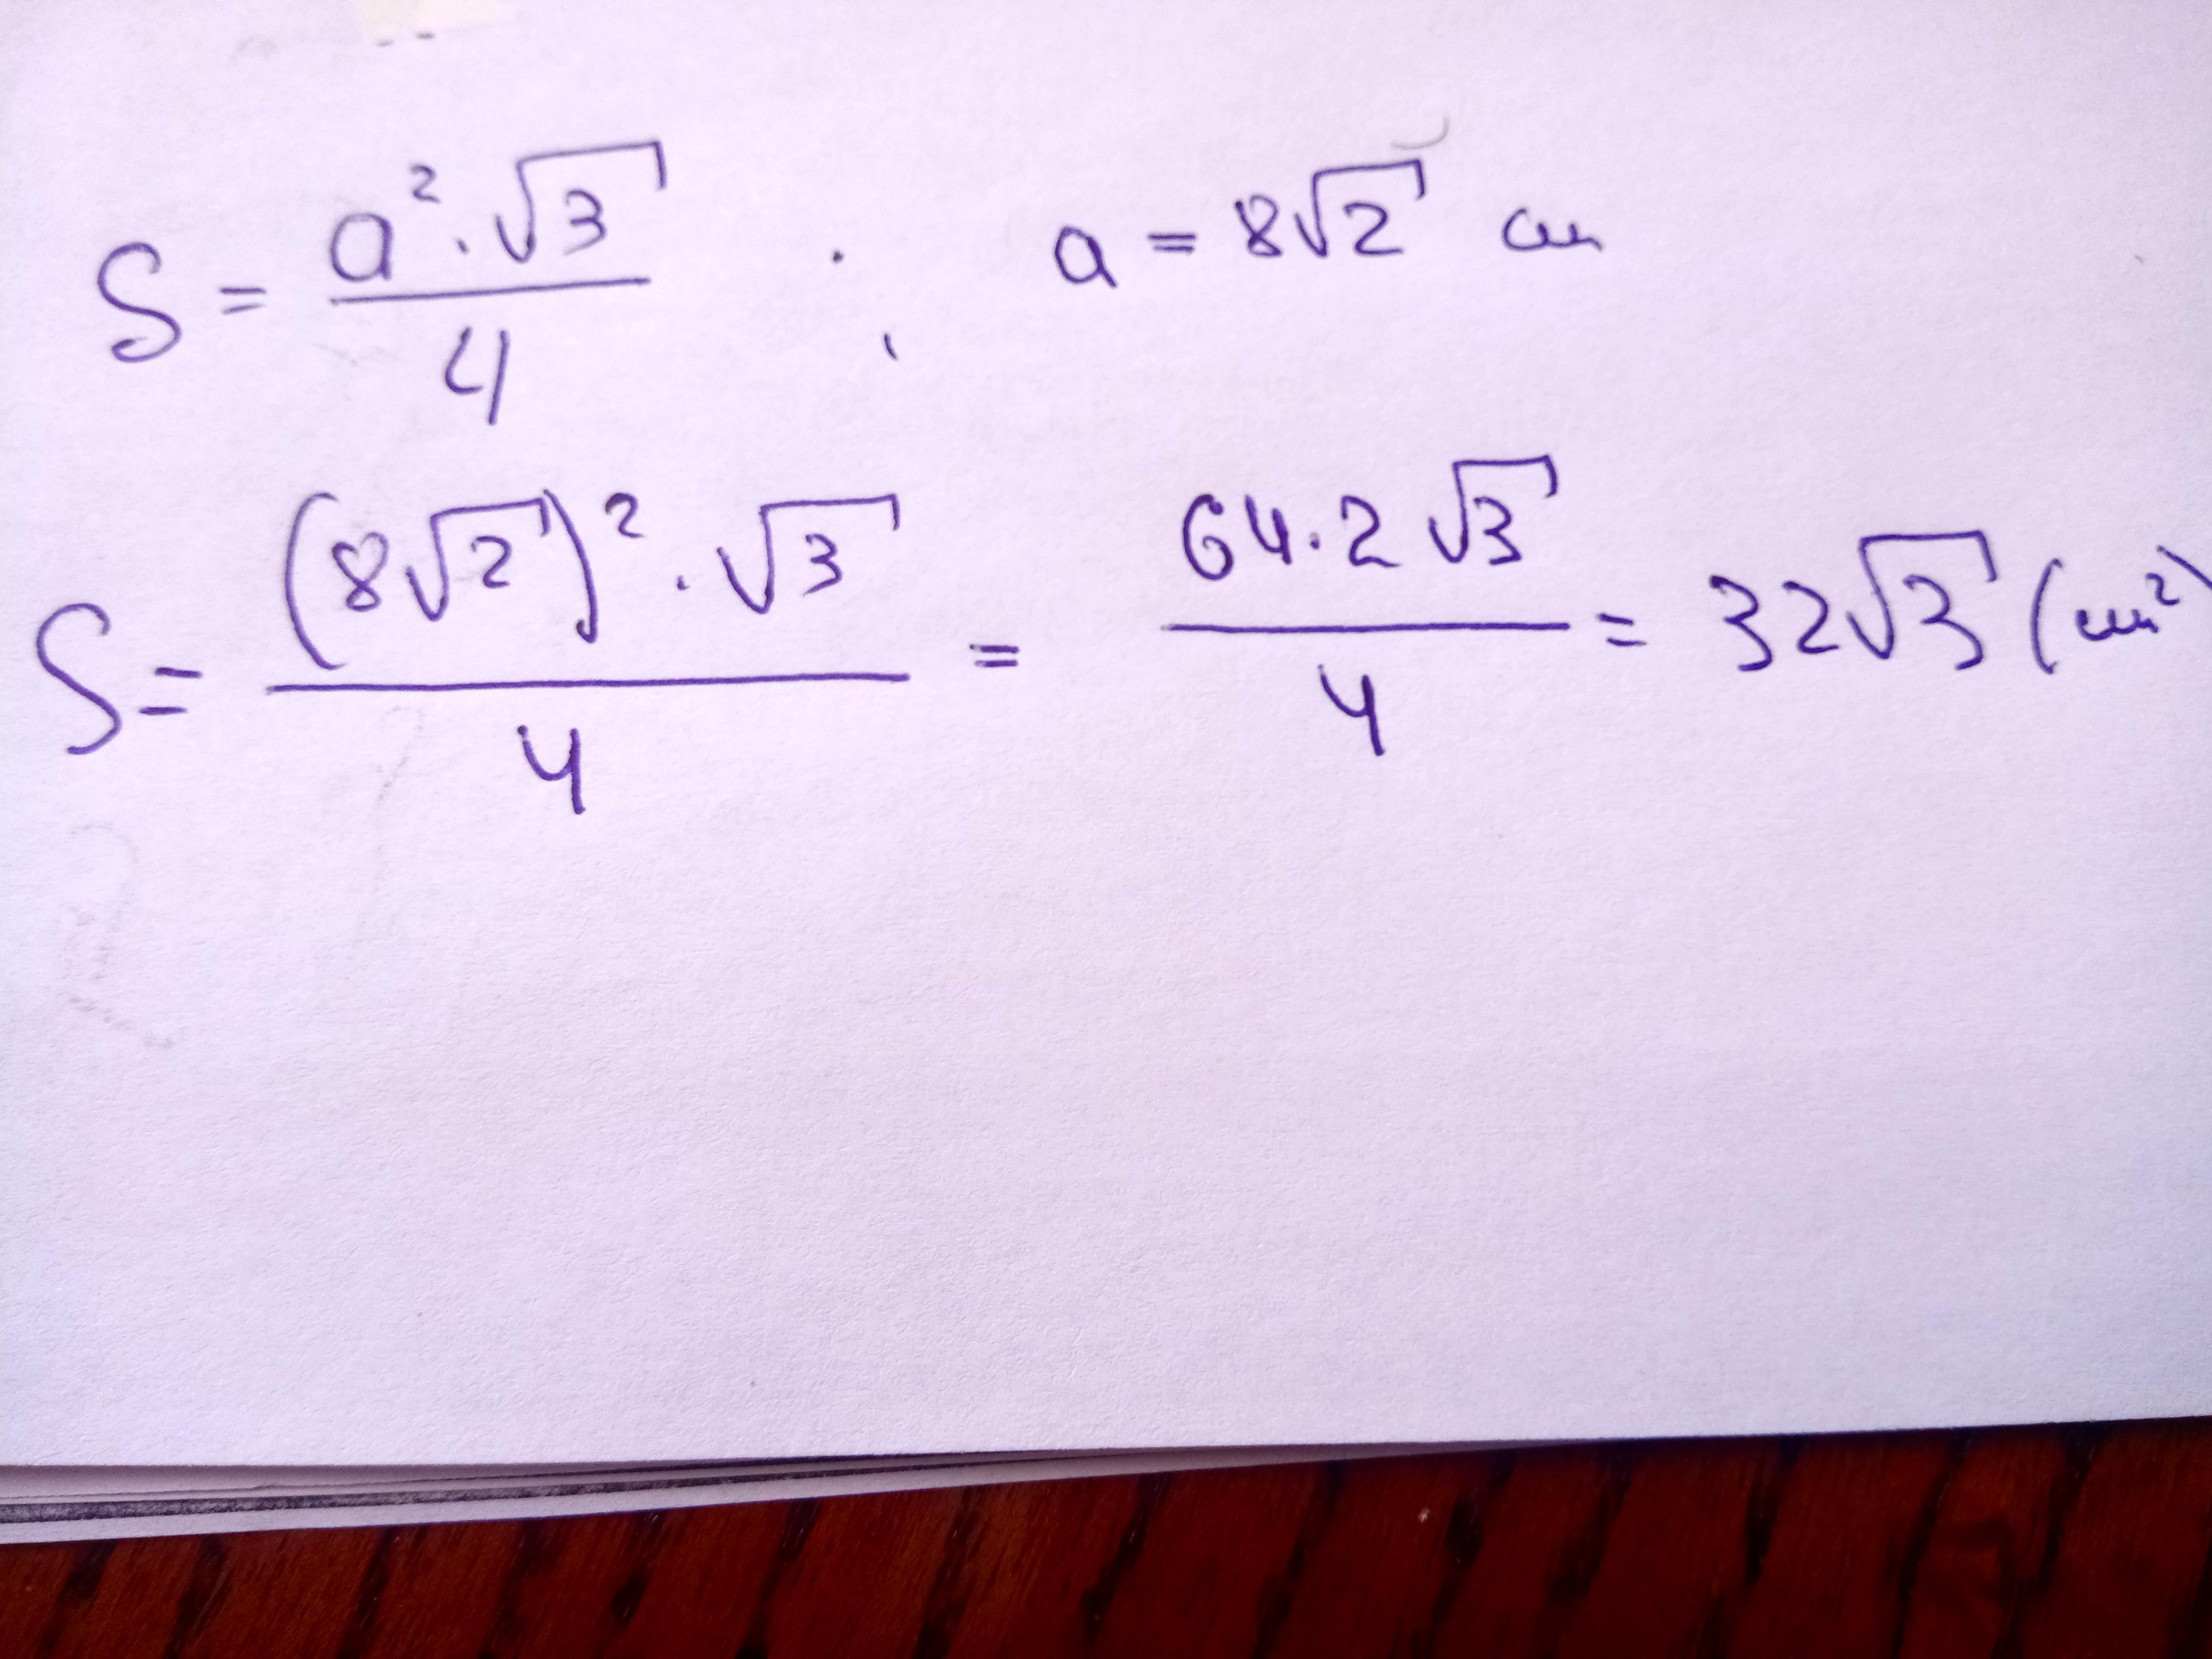 S = a² · √3 / 4 ; a = 8√2 см
S = (8√2)² · √3 / 4 = 64 · 2 √3 / 4 = 32√3 (см²)